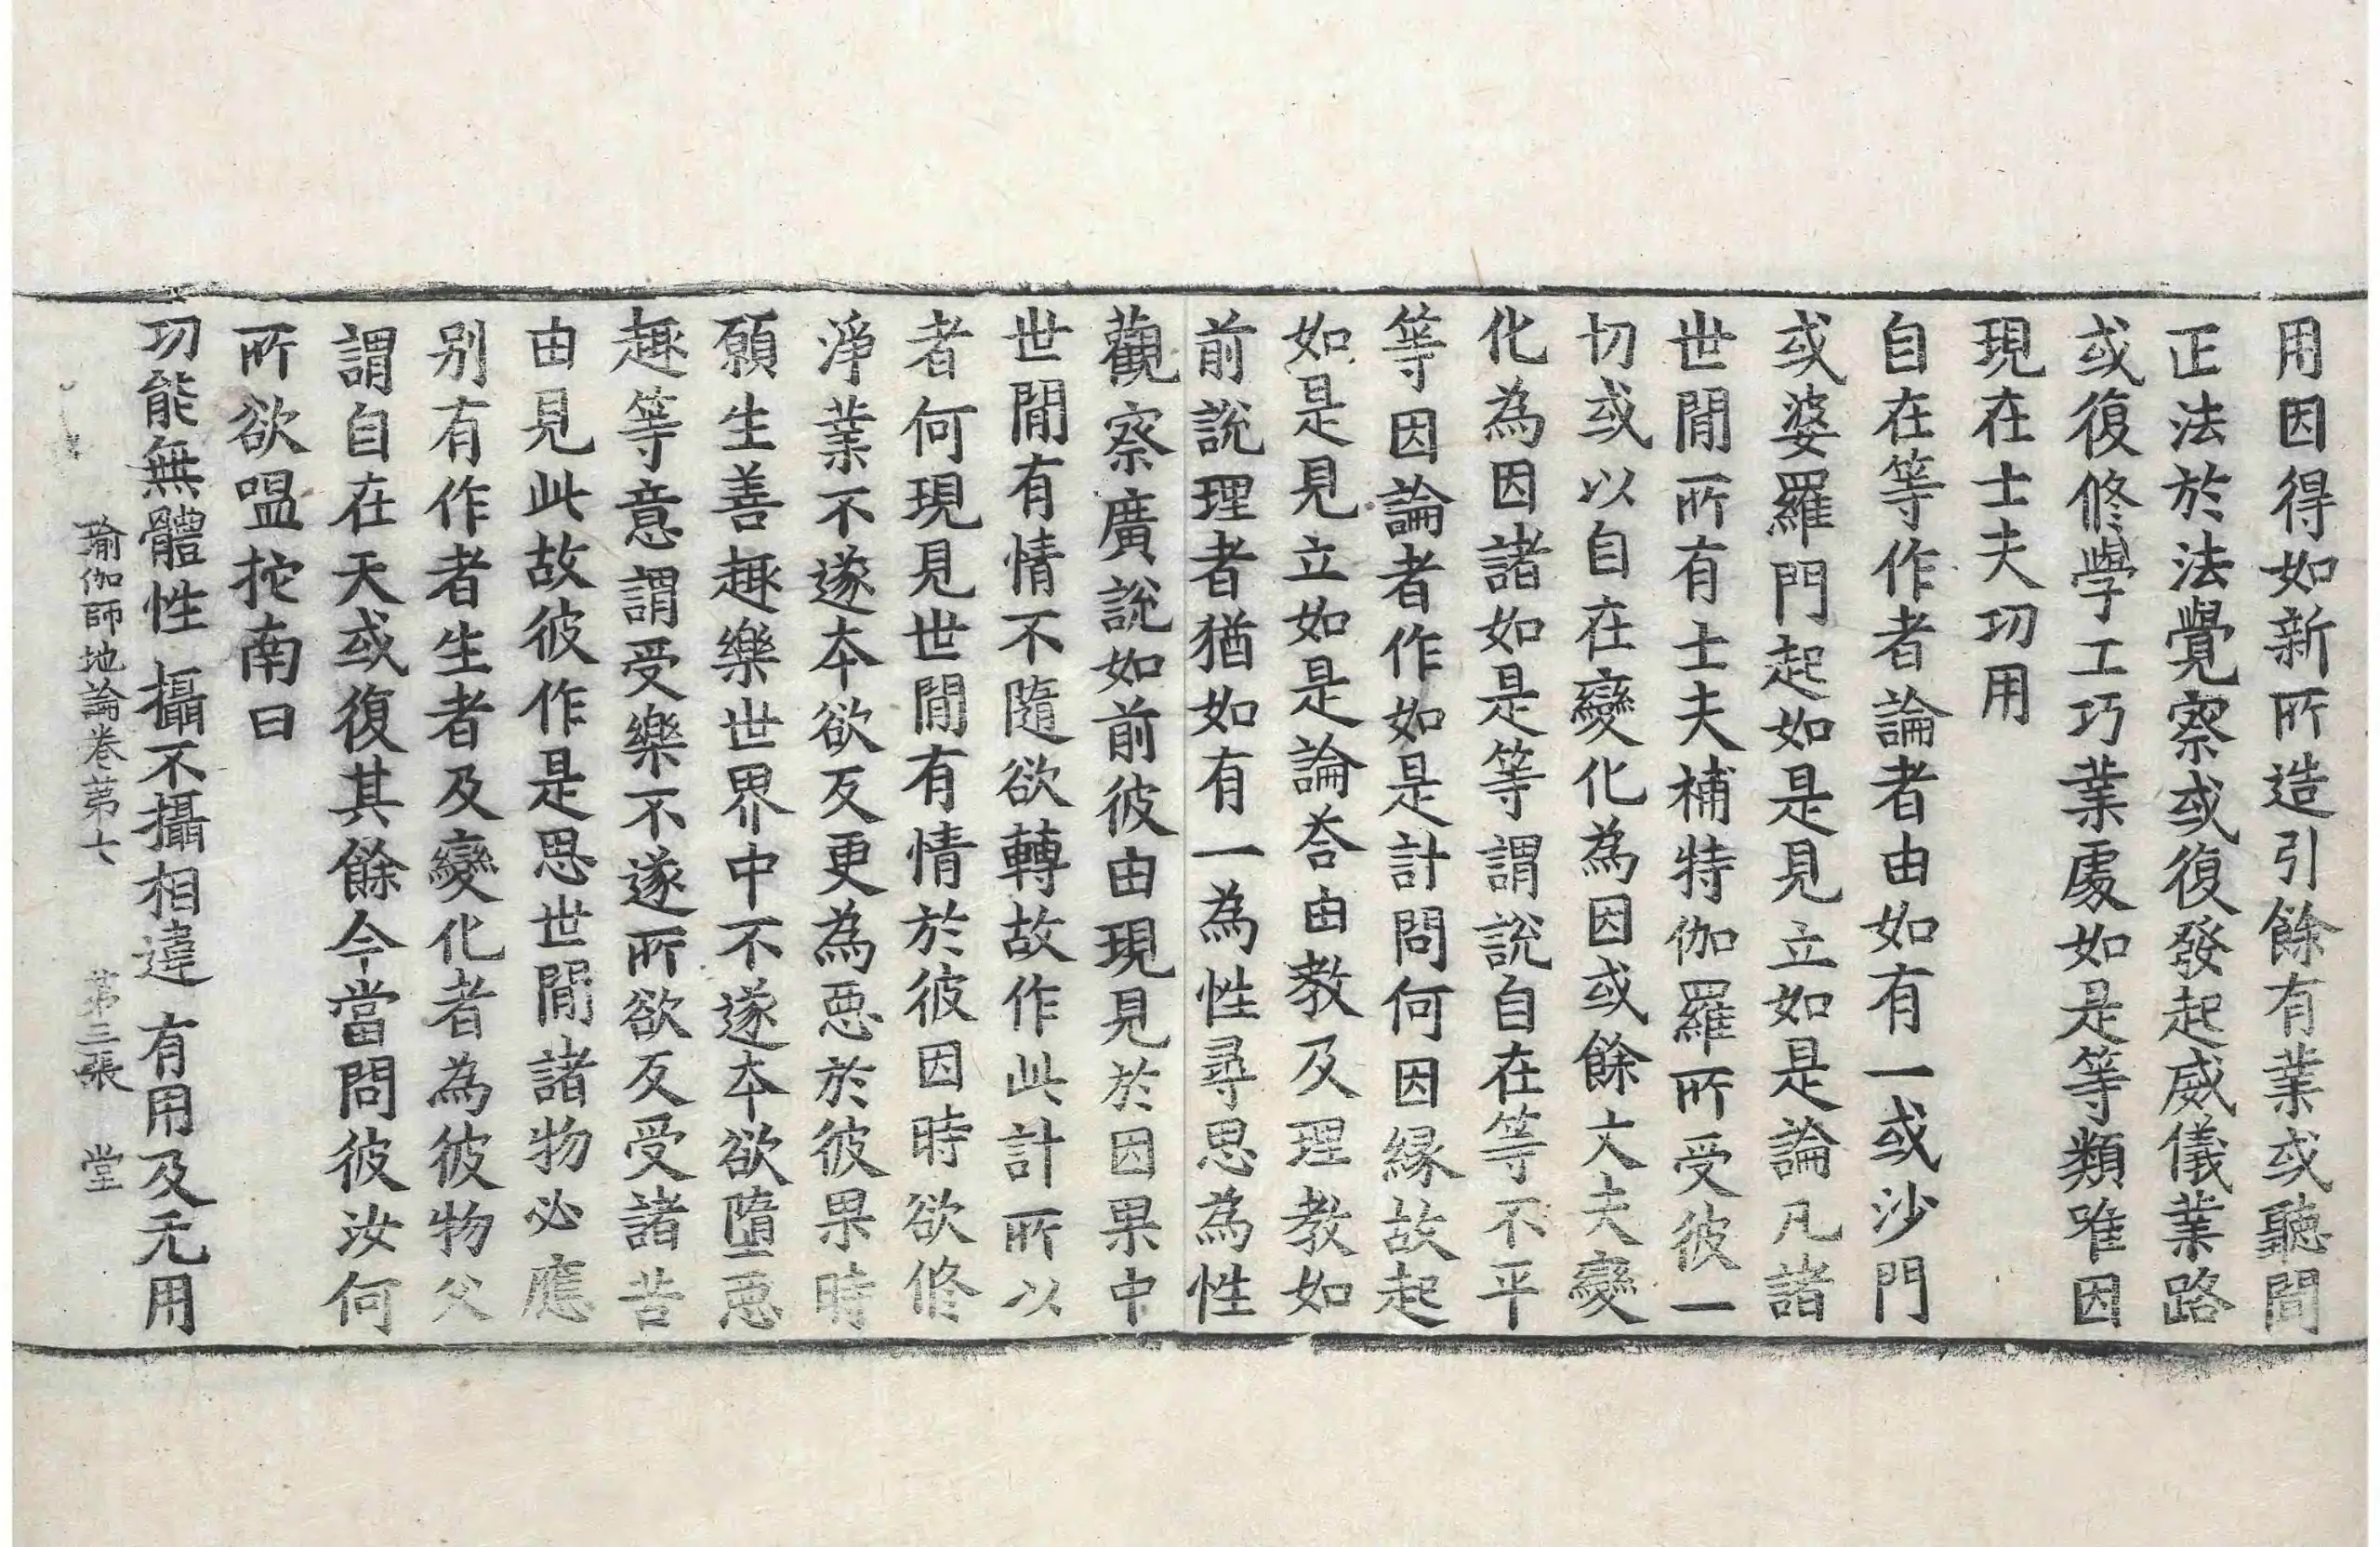 用因得如新所造引餘有業或聽聞
正法於法覺察或復發起威儀業路
或復修學工巧業處如是等類唯因
現在士夫功用
自在等作者論者由如有一或沙門
或婆羅門起如是見立如是論凡諸
世閒所有士夫補特伽羅所受彼一
切或以自在變化為因或餘丈夫變
化為因諸如是等謂說自在等不平
等因論者作如是計問何因緣故起
如是見立如是論荅由教及理教如
前說理者猶如有一為性尋思為性
觀察廣說如前彼由現見於因果中
世閒有情不隨欲轉故作此計所以
者何現見世閒有情於彼因時欲修
淨業不遂本欲反更為惡於彼果時
願生善趣樂世界中不遂本欲墮惡
趣等意謂受樂不遂所欲反受諸苦
由見此故彼作是思世閒諸物必應
別有作者生者及變化者為彼物父
謂自在天或復其餘今當問彼汝何
所欲嗢拕南曰
功能無體性 攝不攝相違 有用及无用
瑜伽師地論卷第七 第三張 堂